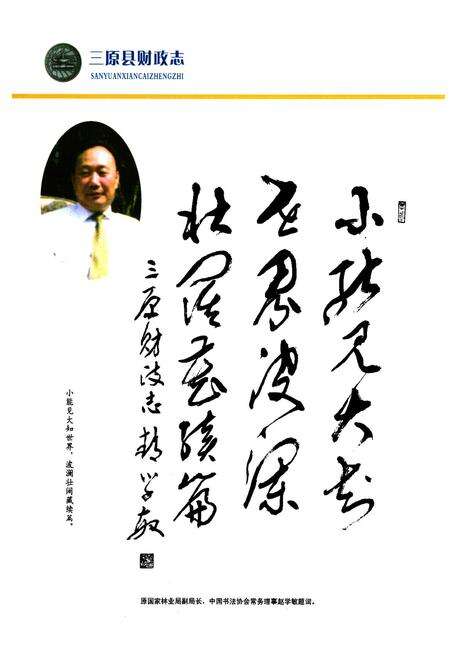 三原县财政志
SANYUANXIANCAIZHENGZHI
小能见大知
世界波澜
壮阔藏续篇
三原财政志 赵学敏
小能见大知世界，波澜壮阔藏续篇。
原国家林业局副局长、中国书法协会常务理事赵学敏题词。